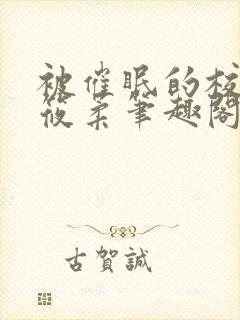 被催眠的校
筱柔笔趣阁
古賀誠